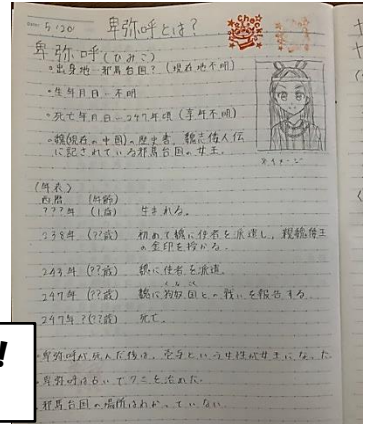 5/20
卑弥呼とは？
卑弥呼(ひみこ)
・出身地-邪馬台国？(現在地不明)
・生年月日-不明
・死亡年月日-247年頃(享年不明)
・魏(現在の中国)の歴史書、魏志倭人伝
に記されている邪馬台国の女王。
※イメージ
(年表)
西暦 (年齢)
???年 (1歳) 生まれる。
238年 (??歳) 初めて魏に使者を派遣し、親魏倭王
の金印を授かる。
243年 (??歳) 魏に使者を派遣。
247年 (??歳) 魏に狗奴国との戦いを報告する。
247年?(??歳) 死亡。
・卑弥呼が死んだ後は、壱与という女性が女王になった。
・卑弥呼は占いでクニを治めた。
・邪馬台国の場所はわかっていない。
!